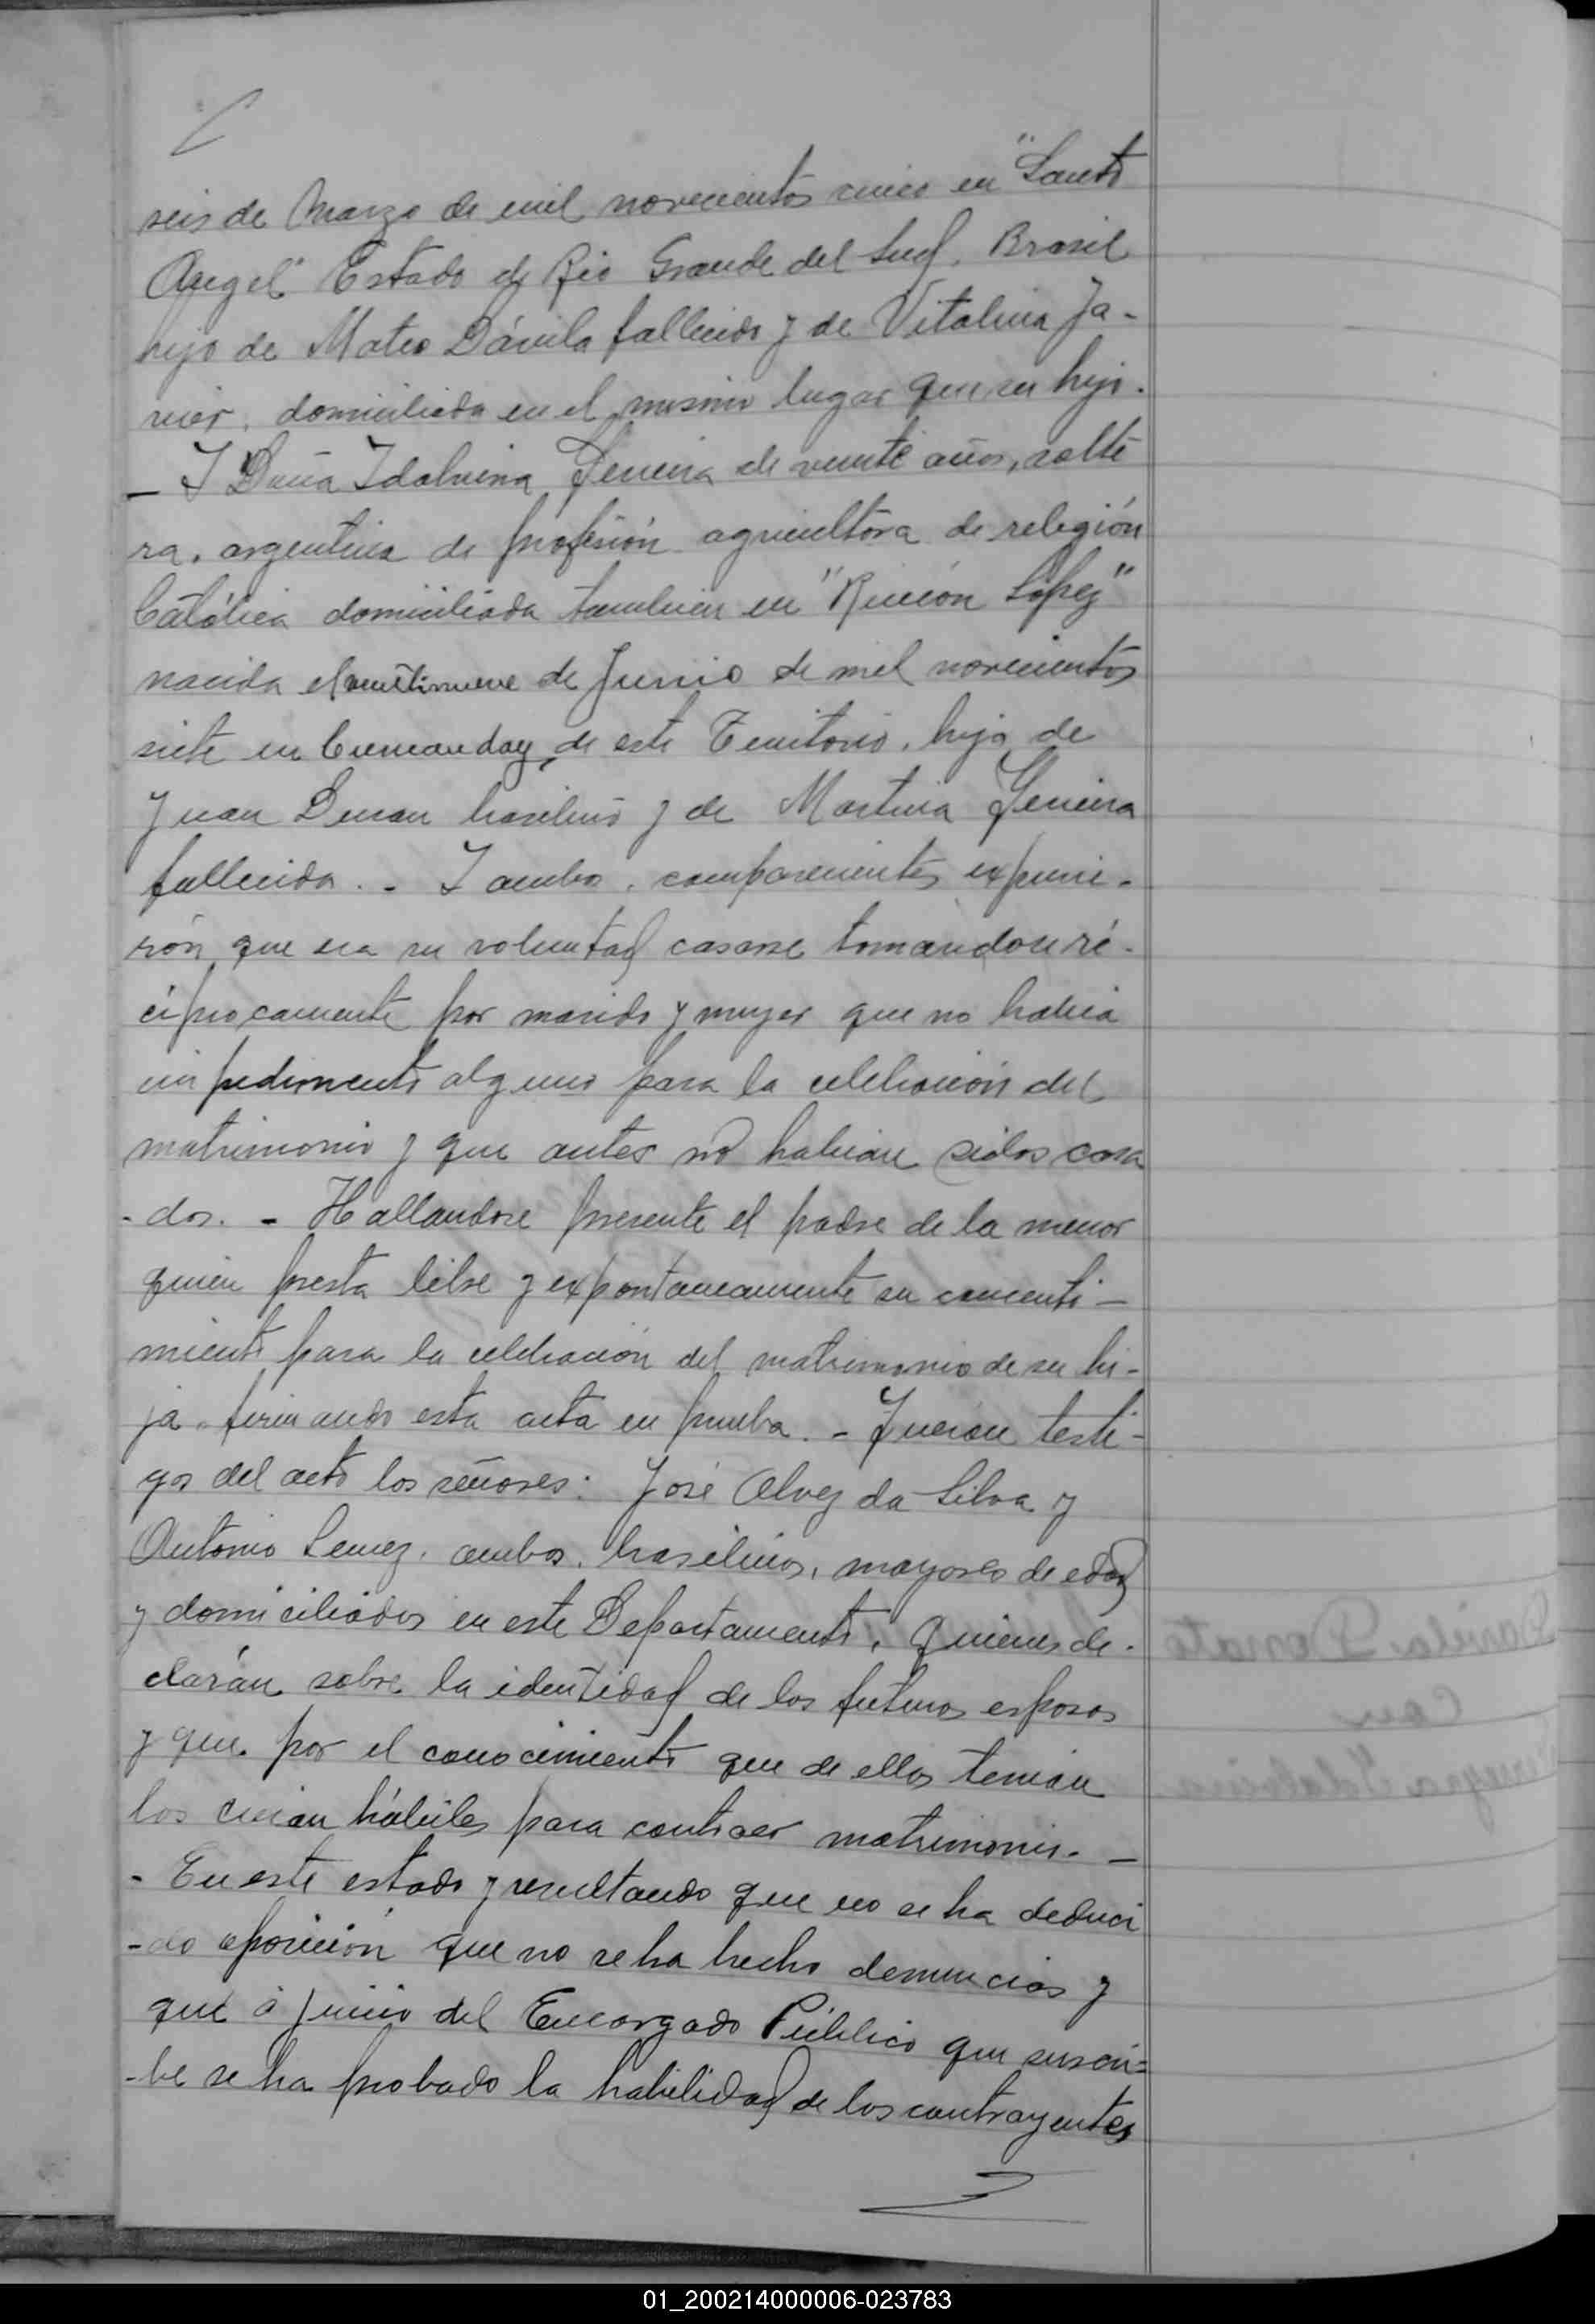 seis de Marzo de mil novecientos cinco en "Santo
Angel" Estado de Rio Grande del Sud, Brasil
hijo de Mateo Dávila fallecido y de Vitalina Ja-
vier, domiciliada en el mismo lugar que su hijo.
- Y Doña Idalvina Pereira de veinte años, solte
ra, argentina de profesión agricultora de religión
Católica domiciliada tambien en "Rincón López"
nacida el veintinueve de Junio de mil novecientos
siete en Cumanday, de este Territorio, hija de
Juan Duran brasilero y de Martina Pereira
fallecida. - Y ambos comparecientes expusie-
rón que era su voluntad casarse tomandose re-
ciprocamente por marido y mujer que no habia
impedimento alguno para la celebración del
matrimonio y que antes no habian sidos casa
-dos. - Hallandose presente el padre de la menor
quien presta libre y expontaneamente su concenti-
miento para la celebración del matrimonio de su hi-
ja, firmando esta acta en prueba. - Fueron testi-
gos del acto los señores: José Alvez da Silva y
Antonio Lemez, ambos, brasileros, mayores de edad
y domiciliados en este Departamento, quienes de-
clarán sobre la identidad de los futuros esposos
y que por el conocimiento que de ellos tenian
los creian hábiles para contraer matrimonio. -
- En este estado y resultando que no se ha deduci
-do oposición que no se ha hecho denuncias y
que á juicio del Encargado Público que suscri=
-be se ha probado la habilidad de los contrayentes
Davila Donato
con
Idalvina
01_200214000006-023783